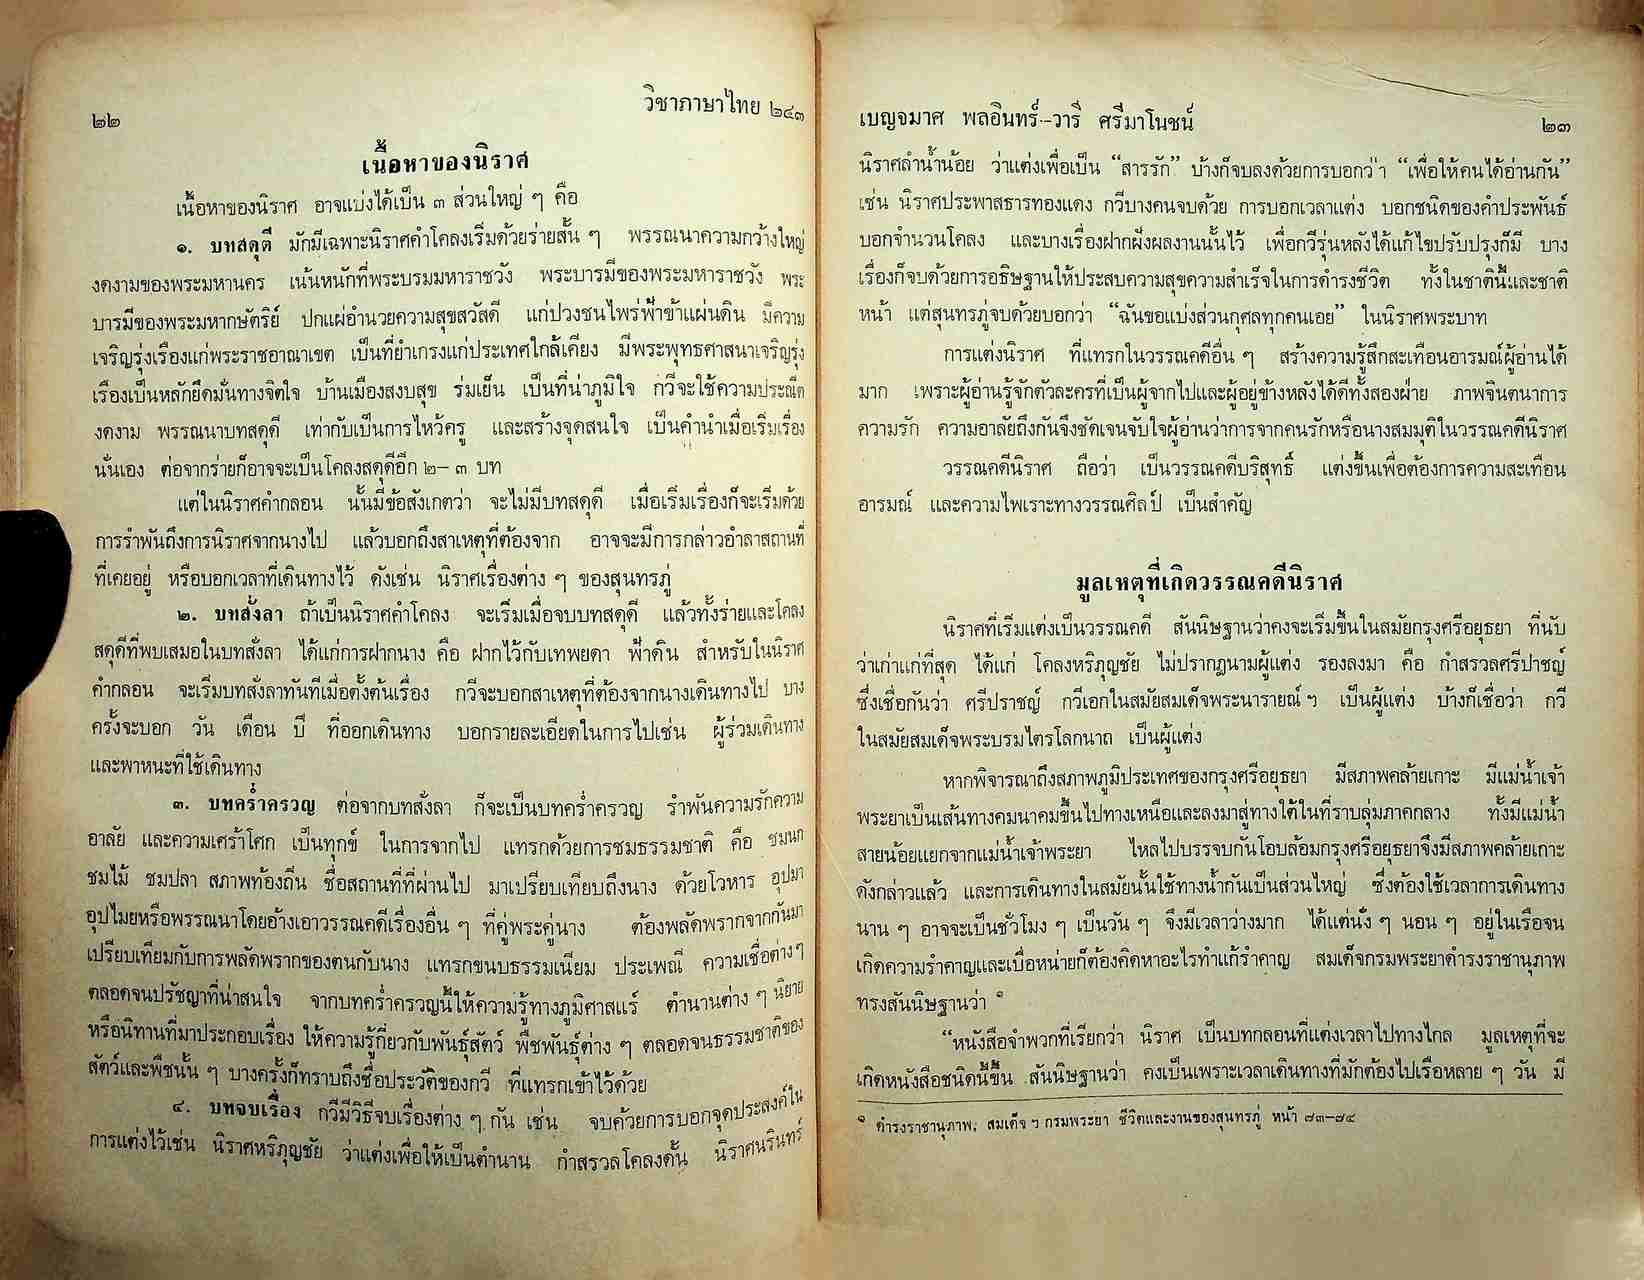 ๒๒
วิชาภาษาไทย ๒๔๓
เนื้อหาของนิราศ
เนื้อหาของนิราศ อาจแบ่งได้เป็น ๓ ส่วนใหญ่ ๆ คือ
๑. บทสดุดี มักมีเฉพาะนิราศคำโคลงเริ่มด้วยร่ายสั้น ๆ พรรณนาความกว้างใหญ่
งดงามของพระมหานคร เน้นหนักที่พระบรมมหาราชวัง พระบารมีของพระมหาราชวัง พระ
บารมีของพระมหากษัตริย์ ปกแผ่อำนวยความสุขสวัสดี แก่ปวงชนไพร่ฟ้าข้าแผ่นดิน มีความ
เจริญรุ่งเรืองแก่พระราชอาณาเขต เป็นที่ยำเกรงแก่ประเทศใกล้เคียง มีพระพุทธศาสนาเจริญรุ่ง
เรืองเป็นหลักยึดมั่นทางจิตใจ บ้านเมืองสงบสุข ร่มเย็น เป็นที่น่าภูมิใจ กวีจะใช้ความประณีต
งดงาม พรรณนาบทสดุดี เท่ากับเป็นการไหว้ครู และสร้างจุดสนใจ เป็นคำนำเมื่อเริ่มเรื่อง
นั่นเอง ต่อจากร่ายก็อาจจะเป็นโคลงสดุดีอีก ๒–๓ บท
แต่ในนิราศคำกลอน นั้นมีข้อสังเกตว่า จะไม่มีบทสดุดี เมื่อเริ่มเรื่องก็จะเริ่มด้วย
การรำพันถึงการนิราศจากนางไป แล้วบอกถึงสาเหตุที่ต้องจาก อาจจะมีการกล่าวอำลาสถานที่
ที่เคยอยู่ หรือบอกเวลาที่เดินทางไว้ ดังเช่น นิราศเรื่องต่าง ๆ ของสุนทรภู่
๒. บทสั่งลา ถ้าเป็นนิราศคำโคลง จะเริ่มเมื่อจบบทสดุดี แล้วทั้งร่ายและโคลง
สดุดีที่พบเสมอในบทสั่งลา ได้แก่การฝากนาง คือ ฝากไว้กับเทพยดา ฟ้าดิน สำหรับในนิราศ
คำกลอน จะเริ่มบทสั่งลาทันทีเมื่อตั้งต้นเรื่อง กวีจะบอกสาเหตุที่ต้องจากนางเดินทางไป บาง
ครั้งจะบอก วัน เดือน ปี ที่ออกเดินทาง บอกรายละเอียดในการไปเช่น ผู้ร่วมเดินทาง
และพาหนะที่ใช้เดินทาง
๓. บทคร่ำครวญ ต่อจากบทสั่งลา ก็จะเป็นบทคร่ำครวญ รำพันความรักความ
อาลัย และความเศร้าโศก เป็นทุกข์ ในการจากไป แทรกด้วยการชมธรรมชาติ คือ ชมนก
ชมไม้ ชมปลา สภาพท้องถิ่น ชื่อสถานที่ที่ผ่านไป มาเปรียบเทียบถึงนาง ด้วยโวหาร อุปมา
อุปไมยหรือพรรณนาโดยอ้างเอาวรรณคดีเรื่องอื่น ๆ ที่คู่พระคู่นาง ต้องพลัดพรากจากกันมา
เปรียบเทียมกับการพลัดพรากของตนกับนาง แทรกขนบธรรมเนียม ประเพณี ความเชื่อต่างๆ
ตลอดจนปรัชญาที่น่าสนใจ จากบทคร่ำครวญนี้ให้ความรู้ทางภูมิศาสแร์ ตำนานต่าง ๆ นิยาย
หรือนิทานที่มาประกอบเรื่อง ให้ความรู้กี่ยวกับพันธุ์สัตว์ พืชพันธุ์ต่าง ๆ ตลอดจนธรรมชาติของ
สัตว์และพืชนั้น ๆ บางครั้งก็ทราบถึงชื่อประวัติของกวี ที่แทรกเข้าไว้ด้วย
๔. บทจบเรื่อง กวีมีวิธีจบเรื่องต่าง ๆ กัน เช่น จบด้วยการบอกจุดประสงค์ใน
การแต่งไว้เช่น นิราศหริภุญชัย ว่าแต่งเพื่อให้เป็นตำนาน กำสรวลโคลงดั้น นิราศนรินทร์
เบญจมาศ พลอินทร์–วารี ศรีมาโนชน์
๒๓
นิราศลำน้ำน้อย ว่าแต่งเพื่อเป็น “สารรัก” บ้างก็จบลงด้วยการบอกว่า “เพื่อให้คนได้อ่านกัน”
เช่น นิราศประพาสธารทองแดง กวีบางคนจบด้วย การบอกเวลาแต่ง บอกชนิดของคำประพันธ์
บอกจำนวนโคลง และบางเรื่องฝากฝังผลงานนั้นไว้ เพื่อกวีรุ่นหลังได้แก้ไขปรับปรุงก็มี บาง
เรื่องก็จบด้วยการอธิษฐานให้ประสบความสุขความสำเร็จในการดำรงชีวิต ทั้งในชาตินี้และชาติ
หน้า แต่สุนทรภู่จบด้วยบอกว่า “ฉันขอแบ่งส่วนกุศลทุกคนเอย” ในนิราศพระบาท
การแต่งนิราศ ที่แทรกในวรรณคดีอื่น ๆ สร้างความรู้สึกสะเทือนอารมณ์ผู้อ่านได้
มาก เพราะผู้อ่านรู้จักตัวละครที่เป็นผู้จากไปและผู้อยู่ข้างหลังได้ดีทั้งสองฝ่าย ภาพจินตนาการ
ความรัก ความอาลัยถึงกันจึงชัดเจนจับใจผู้อ่านว่าการจากคนรักหรือนางสมมุติในวรรณคดีนิราศ
วรรณคดีนิราศ ถือว่า เป็นวรรณคดีบริสุทธิ์ แต่งขึ้นเพื่อต้องการความสะเทือน
อารมณ์ และความไพเราะทางวรรณศิลป์ เป็นสำคัญ
มูลเหตุที่เกิดวรรณคดีนิราศ
นิราศที่เริ่มแต่งเป็นวรรณคดี สันนิษฐานว่าคงจะเริ่มขึ้นในสมัยกรุงศรีอยุธยา ที่นับ
ว่าเก่าแก่ที่สุด ได้แก่ โคลงหริภุญชัย ไม่ปรากฏนามผู้แต่ง รองลงมา คือ กำสรวลศรีปาชญ์
ซึ่งเชื่อกันว่า ศรีปราชญ์ กวีเอกในสมัยสมเด็จพระนารายณ์ ฯ เป็นผู้แต่ง บ้างก็เชื่อว่า กวี
ในสมัยสมเด็จพระบรมไตรโลกนาถ เป็นผู้แต่ง
หากพิจารณาถึงสภาพภูมิประเทศของกรุงศรีอยุธยา มีสภาพคล้ายเกาะ มีแม่น้ำเจ้า
พระยาเป็นเส้นทางคมนาคมขึ้นไปทางเหนือและลงมาสู่ทางใต้ในที่ราบลุ่มภาคกลาง ทั้งมีแม่น้ำ
สายน้อยแยกจากแม่น้ำเจ้าพระยา ไหลไปบรรจบกันโอบล้อมกรุงศรีอยุธยาจึงมีสภาพคล้ายเกาะ
ดังกล่าวแล้ว และการเดินทางในสมัยนั้นใช้ทางน้ำกันเป็นส่วนใหญ่ ซึ่งต้องใช้เวลาการเดินทาง
นาน ๆ อาจจะเป็นชั่วโมง ๆ เป็นวัน ๆ จึงมีเวลาว่างมาก ได้แต่นั่ง ๆ นอน ๆ อยู่ในเรือจน
เกิดความรำคาญและเบื่อหน่ายก็ต้องคิดหาอะไรทำแก้รำคาญ สมเด็จกรมพระยาดำรงราชานุภาพ
ทรงสันนิษฐานว่า ๑
“หนังสือจำพวกที่เรียกว่า นิราศ เป็นบทกลอนที่แต่งเวลาไปทางไกล มูลเหตุที่จะ
เกิดหนังสือชนิดนี้ขึ้น สันนิษฐานว่า คงเป็นเพราะเวลาเดินทางที่มักต้องไปเรือหลาย ๆ วัน มี
๑ ดำรงราชานุภาพ, สมเด็จ ฯ กรมพระยา ชีวิตและงานของสุนทรภู่ หน้า ๗๓–๗๔